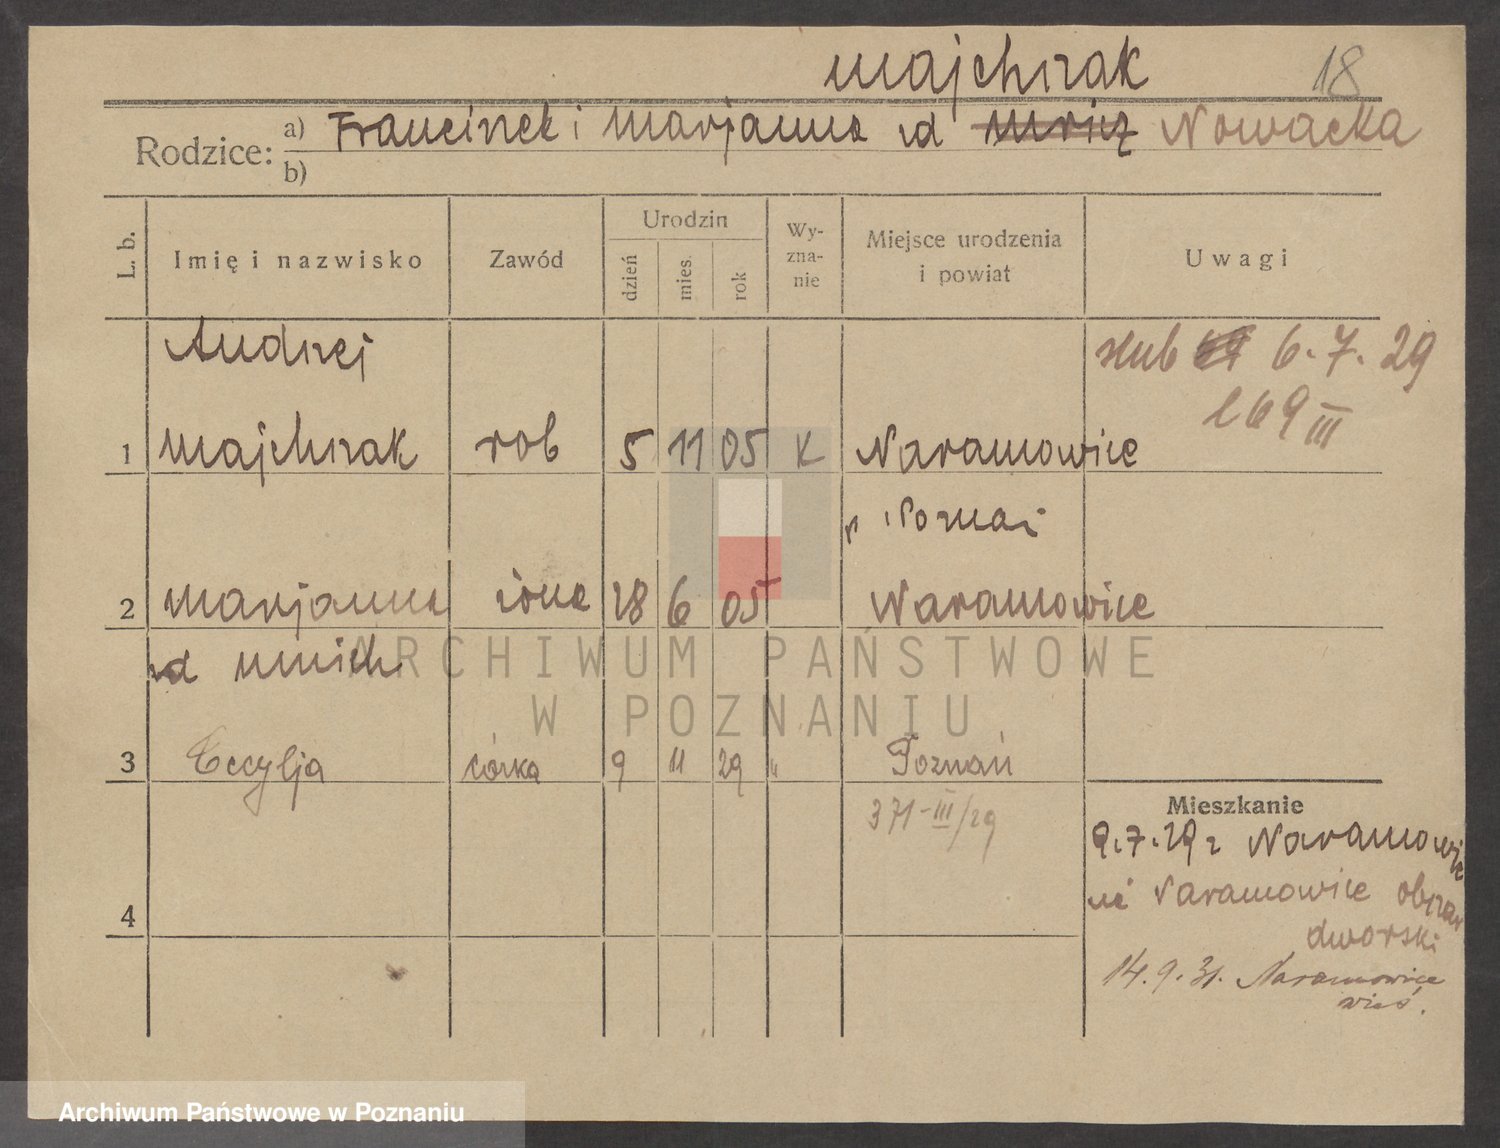 Majchrzak 18
Rodzice: a) Franciszek i Marjanna zd Nowacka
b)
L. b. Imię i nazwisko Zawód Urodzin dzień mies. rok Wy-zna-nie Miejsce urodzenia i powiat Uwagi
Andrzej ślub 6.7.29
169 III
1 Majchrzak rob 5 11 05 K Naramowice
p Poznań
2 Marjanna żona 28 6 05 Naramowice
zd Mnich
3 Cecylja córka 9 11 29 " Poznań
371-III/29
Mieszkanie
9.7.29 z Naramowic
Naramowice obszar
4
dworski
14.9.31. Naramowice
wieś.
ARCHIWUM PAŃSTWOWE
W POZNANIU
Archiwum Państwowe w Poznaniu